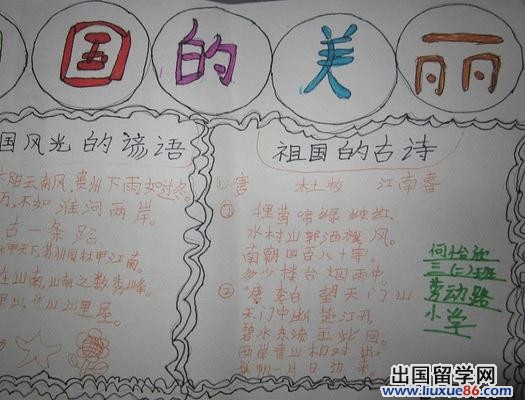 国的美丽
国风光的谚语
阳云南风,贵州下雨如过冬。
万,不如淮河两岸。
古一条路。
甲天下,苏州园林甲江南。
山南,山南之数秀峰。
甲山,住山山里屋。
祖国的古诗
①唐 杜牧 江南春
① 莺啼绿映红,
水村山郭酒旗风。
南朝四百八十寺,
多少楼台烟雨中。
② 唐 李白 望天门山
天门中断楚江开
碧水东流至此回。
两岸青山相对出,
孤帆一片日边来。
何怡
三(二)班
劳动路
小学
出国留学网
www.liuxue86.com